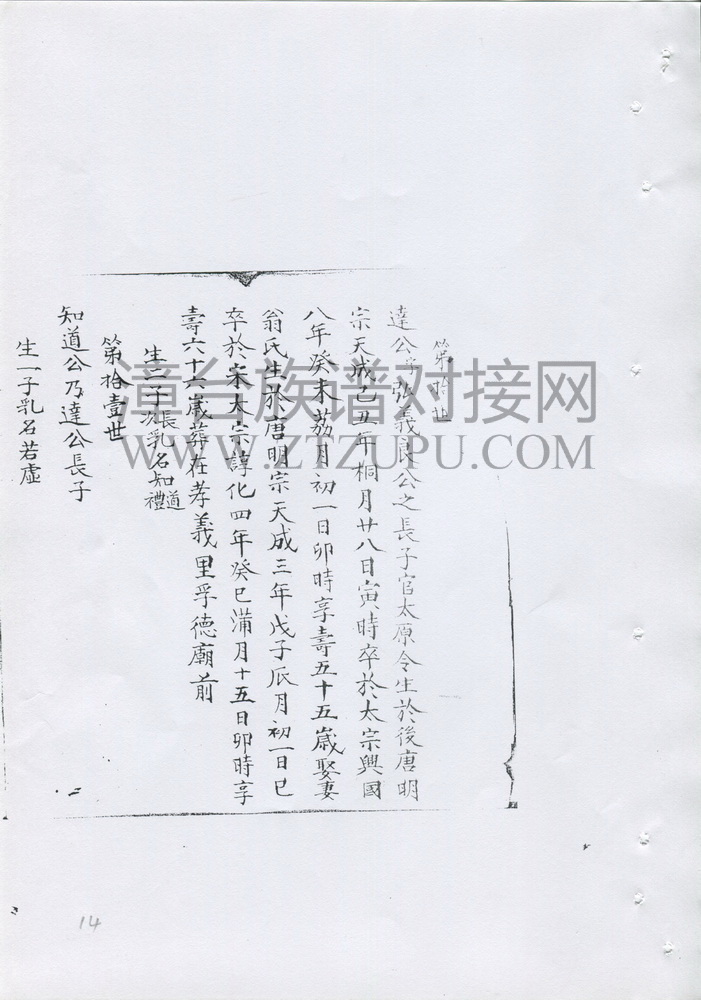 第拾世
達公字弘義良公之長子官太原令生於後唐明
宗天成己丑年桐月廿八日寅時卒於太宗興國
八年癸未荔月初一日卯時享壽五十五歲娶妻
翁氏生於唐明宗天成三年戊子辰月初一日巳
卒於宋太宗諄化四年癸巳蒲月十五日卯時享
壽六十六歲葬在孝義里孚德廟前
生二子長次乳名知道禮
第拾壹世
知道公乃達公長子
生一子乳名若虛
漳台族谱对接网
WWW.ZTZUPU.COM
14